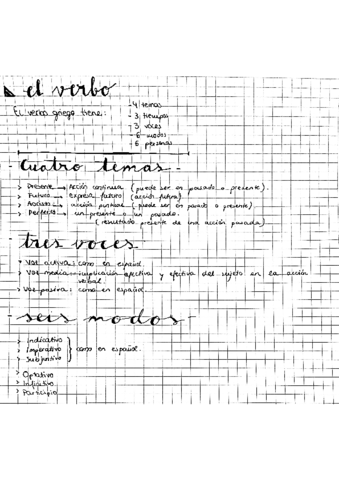 el verbo
El verbo griego tiene:
- 4 temas
- 3 tiempos
- 3 voces
- 6 modos
- 6 personas
- Cuatro temas -
> Presente → Acción continua (puede ser en pasado o presente).
> Futuro → Expresa futuro (acción futura)
> Aoristo → acción puntual (puede ser en pasado o presente)
> Perfecto → un presente o un pasado.
(resultado presente de una acción pasada)
- tres voces -
> Voz activa: como en español.
> Voz media: implicación afectiva y efectiva del sujeto en la acción
verbal.
> Voz pasiva: como en español.
- seis modos -
> Indicativo
> Imperativo } como en español.
> Subjuntivo
> Optativo
> Infinitivo
> Participio